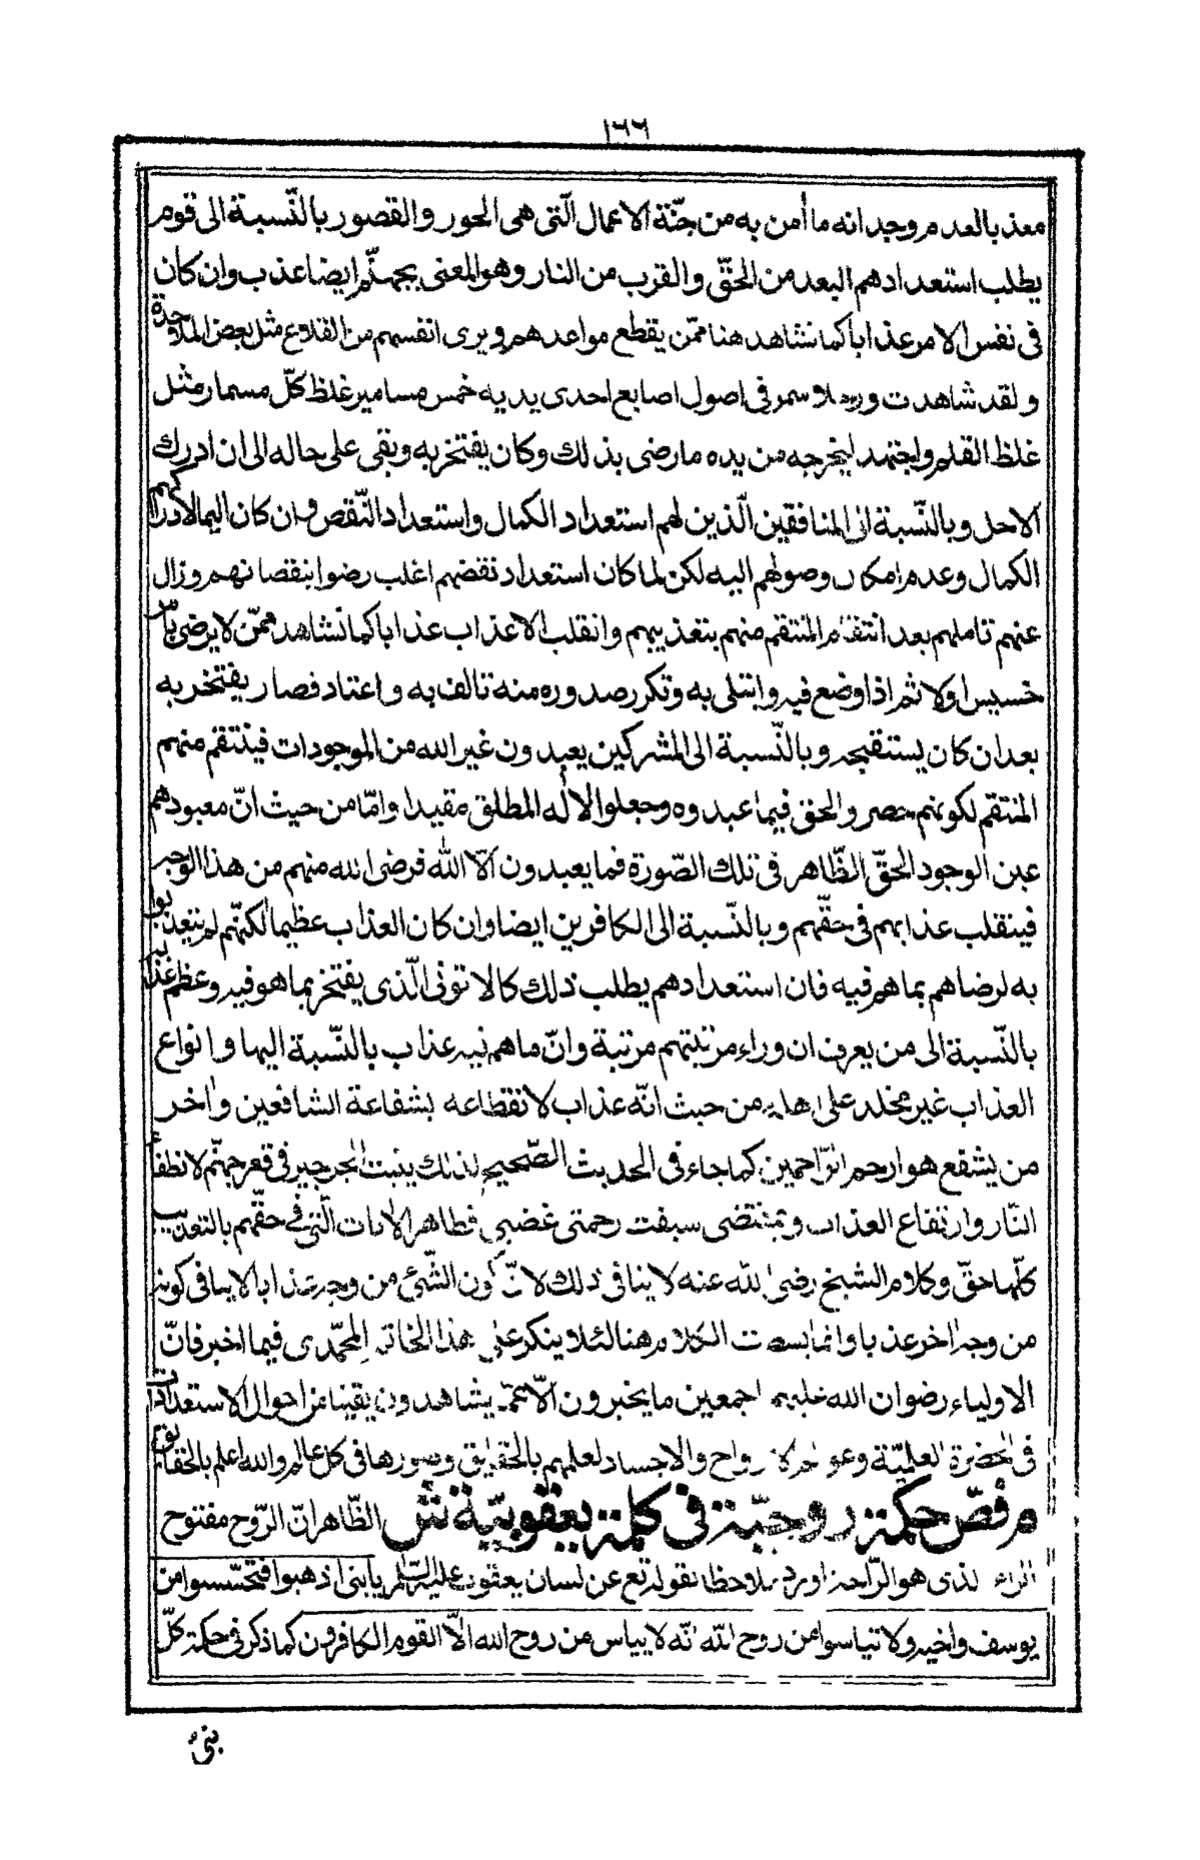 ١٦٦
معذب بالعدم وجدانه ما أمن به من جنّة الاعمال الّتى هى الحور والقصور بالنّسبة الى قوم
يطلب استعدادهم البعد من الحقّ والقرب من النار وهو المعنى بجهنّم ايضا عذب وان كان
فى نفس الامر عذابا كما نشاهد هنا ممّن يقطع سواعدهم ويرى انفسهم من القلاع مثل بعض الملاحدة
ولقد شاهدت رجلا سمر فى اصول اصابع احدى يديه خمس مسامير غلظ كلّ مسمار مثل
غلظ القلم واجتهد ليخرجه من يده ما رضى بذلك وكان يفتخر به وبقى على حاله الى ان ادرك
الاجل وبالنّسبة الى المنافقين الّذين لهم استعداد الكمال واستعداد النّقص وان كان اليما لادراكهم
الكمال وعدم امكان وصولهم اليه لكن لما كان استعداد نقصهم اغلب رضوا بنقصانهم وزال
عنهم تاملهم بعد انتقام المنتقم منهم بتعذيبهم وانقلب الاعذاب عذابا كما نشاهد ممّن لا يرضى بامر
خسيس اولا ثم اذا وضع فيه وابتلى به وتكرر صدوره منه تالف به واعتاد فصار يفتخر به
بعد ان كان يستقبحه وبالنّسبة الى المشركين يعبدون غير الله من الموجودات فينتقم منهم
المنتقم لكونهم حصروا الحق فيما عبدوه وجعلوا الاله المطلق مقيدا وامّا من حيث انّ معبودهم
عين الوجود الحقّ الظّاهر فى تلك الصّورة فما يعبدون الّا الله فرضى الله منهم من هذا الوجه
فينقلب عذابهم فى حقّهم وبالنّسبة الى الكافرين ايضا وان كان العذاب عظيما لكنّهم لم يتعذبوا
به لرضاهم بما هم فيه فان استعدادهم يطلب ذلك كالاتونى الّذى يفتخر بما هو فيه وعظم عذابه
بالنّسبة الى من يعرف ان وراء مرتبتهم مرتبة وانّ ما هم فيه عذاب بالنّسبة اليها وانواع
العذاب غير مخلد على اهله من حيث انّه عذاب لانقطاعه بشفاعة الشافعين واخر
من يشفع هو ارحم الرّاحمين كما جاء فى الحديث الصّحيح لذلك ينبت الجرجير فى قعر جهنّم لانطفاء
النّار وارتفاع العذاب وبمقتضى سبقت رحمتى غضبى فظاهر الايات الّتى فى حقّهم بالتعذيب
كلّها حقّ وكلام الشيخ رضى الله عنه لا ينافى ذلك لانّ كون الشّئ من وجه عذابا لا ينافى كونه
من وجه اخر عذبا وانما بسطت الكلام هنا لئلا ينكر على هذا الخاتم المحمّدى فيما اخبر فانّ
الاولياء رضوان الله عليهم اجمعين ما يخبرون الّا عمّا يشاهدون يقينا من احوال الاستعدادات
فى الحضرة العلميّة وعوالم الارواح والاجساد لعلمهم بالحقايق وصورها فى كل عالم والله اعلم بالحقايق
م فصّ حكمة روحيّة فى كلمة يعقوبيّة ش الظّاهر انّ الرّوح مفتوح
الراء الذى هو الرّاحة اورده ملاحظا بقوله تع عن لسان يعقوب عليه السّلم يا بنى اذهبوا فتحسّسوا من
يوسف واخيه ولا تياسوا من روح الله انّه لا يياس من روح الله الّا القوم الكافرون كما ذكر فى حكمة كلّ
نبىّ